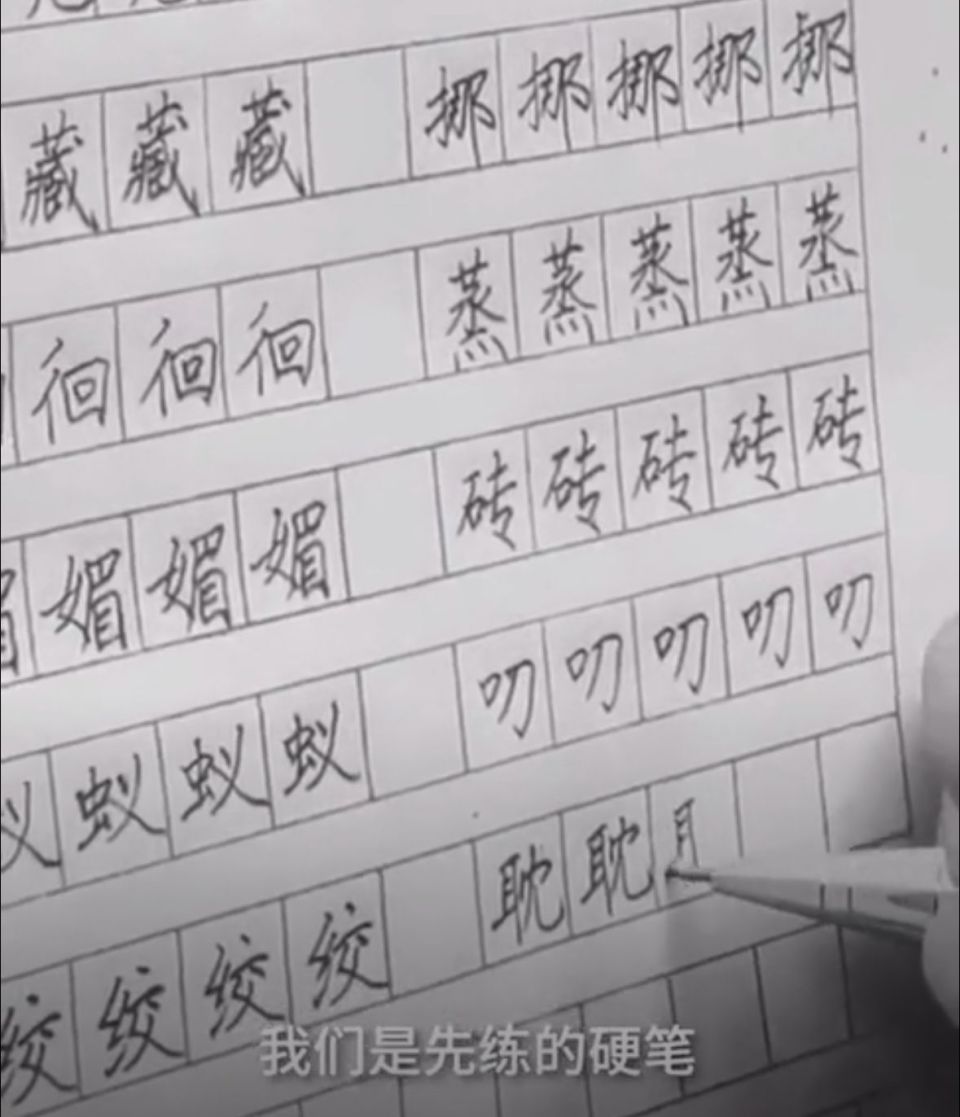 藏藏藏 挪挪挪挪挪
徊徊徊 蒸蒸蒸蒸蒸
媚媚媚媚 砖砖砖砖砖
蚁蚁蚁蚁 叨叨叨叨叨
绞绞绞绞 耽耽
我们是先练的硬笔